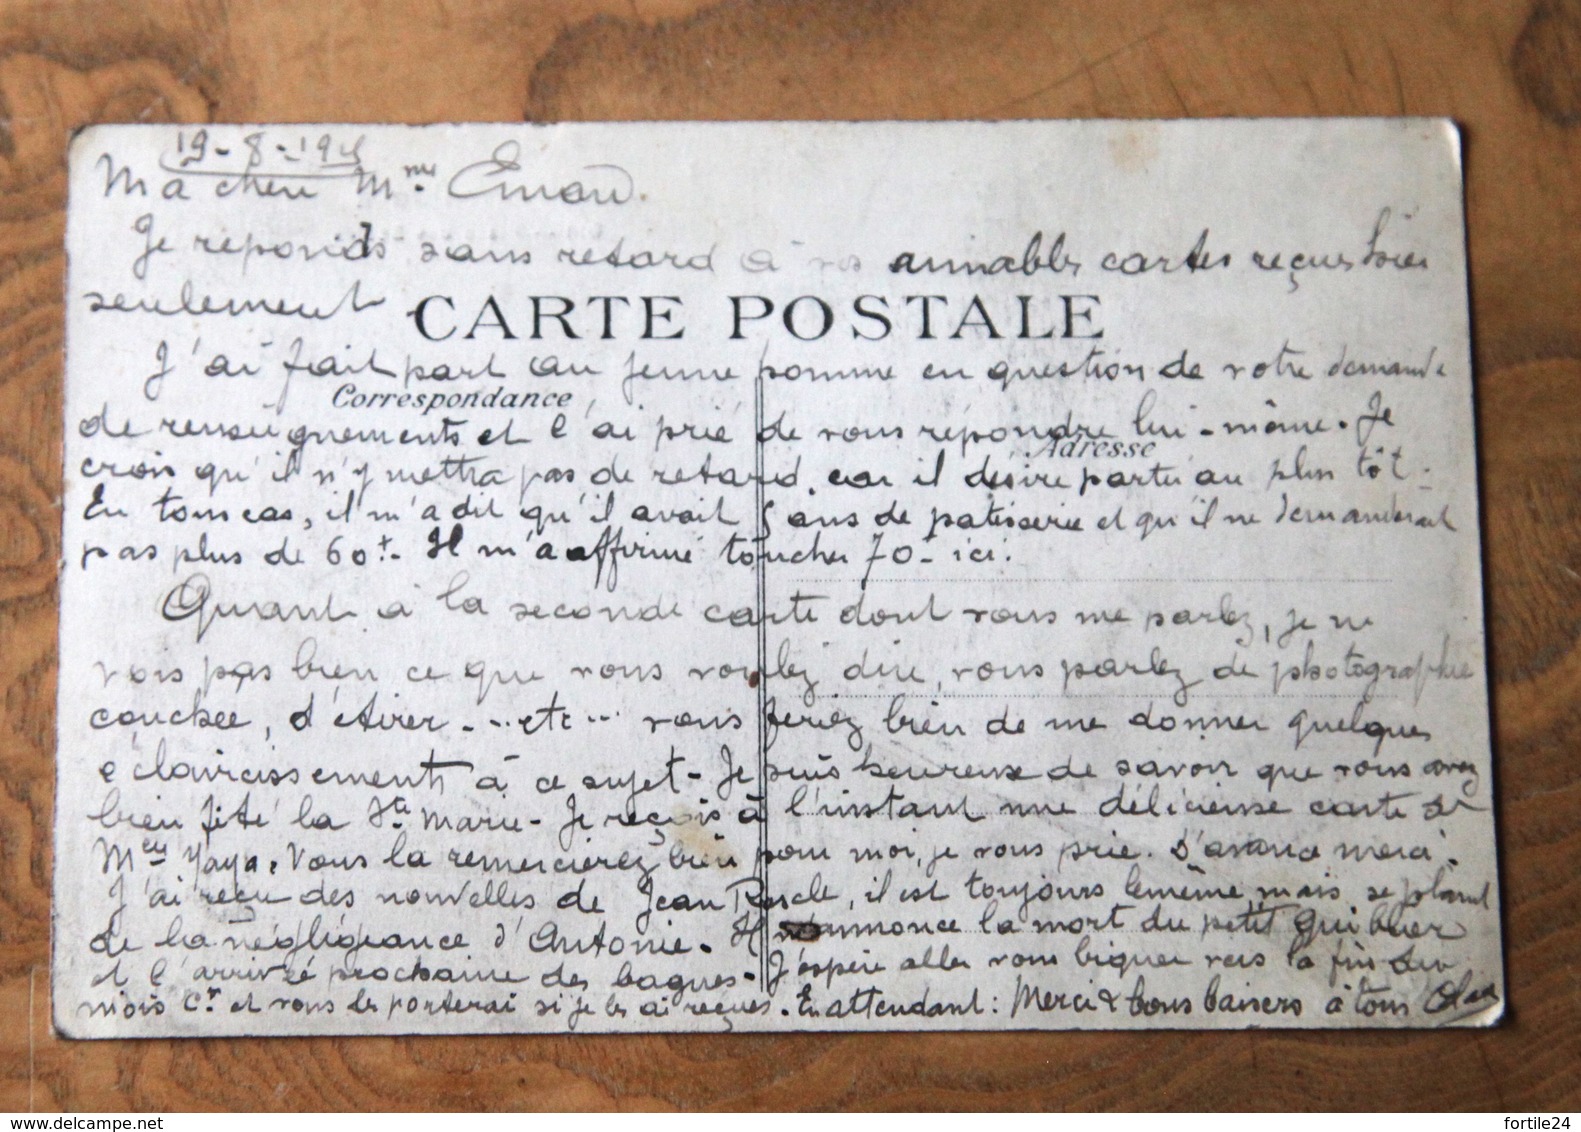 19-8-19
Ma chère Mme Emon.
Je réponds sans retard à vos aimables cartes reçues hier
seulement
CARTE POSTALE
J'ai fait part au jeune homme en question de votre demande
Correspondance
de renseignements et l'ai prié de vous répondre lui-même. Je
Adresse
crois qu'il n'y mettra pas de retard. car il désire partir au plus tôt.
En tous cas, il m'a dit qu'il avait 5 ans de patisserie et qu'il ne demanderait
pas plus de 60f. Il m'a affirmé toucher 70- ici.
Quant à la seconde carte dont vous me parlez, je ne
vois pas bien ce que vous voulez dire, vous parlez de photographie
couchée, d'étirer-...etc... vous feriez bien de me donner quelques
eclaircissements à ce sujet- Je suis heureuse de savoir que vous avez
bien fêté la Ste Marie- Je reçois à l'instant une délicieuse carte de
Yaya. Vous la remercierez bien pour moi, je vous prie. D'avance merci.
J'ai reçu des nouvelles de Jean, il est toujours le même mais se plaint
de la négligeance d'Antonie. Il annonce la mort du petit
et l'arrivée prochaine des bagues- J'espère aller vous biquer vers la fin du
mois Ct et vous les porterai si je les ai reçues. En attendant: Merci & bons baisers à tous
fortile24
www.delcampe.net